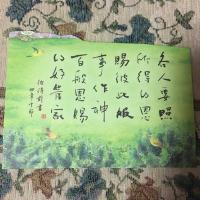 各人要照
所得的恩
賜彼此服
事作神
百般恩賜
的好管家
彼得前書
四章十節